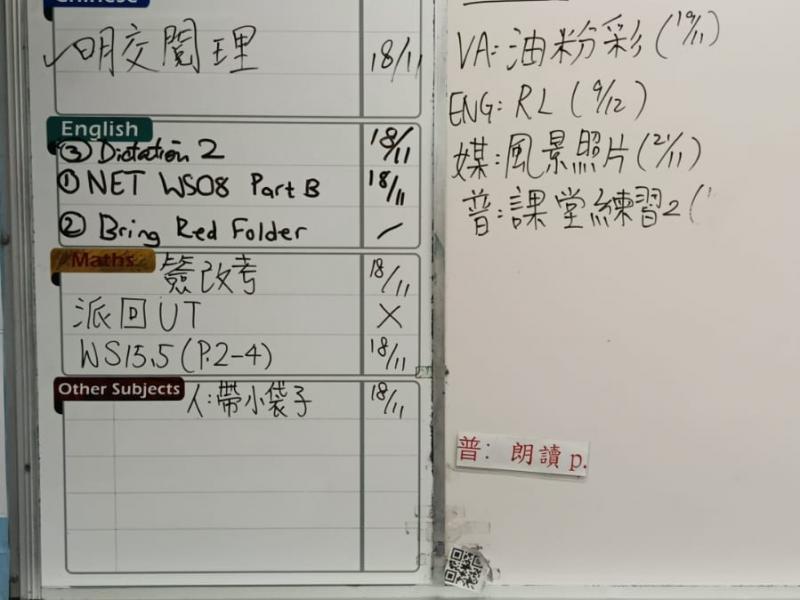 Chinese
✓明交閱理 18/11
English
③ Dictation 2 18/11
① NET WS08 Part B 18/11
② Bring Red Folder /
Maths
簽改考 18/11
派回UT X
WS15.5 (P.2-4) 18/11
Other Subjects
人:帶小袋子 18/11
VA:油粉彩(19/11)
ENG: RL (9/12)
媒:風景照片(21/11)
普:課堂練習2(
普: 朗讀 p.